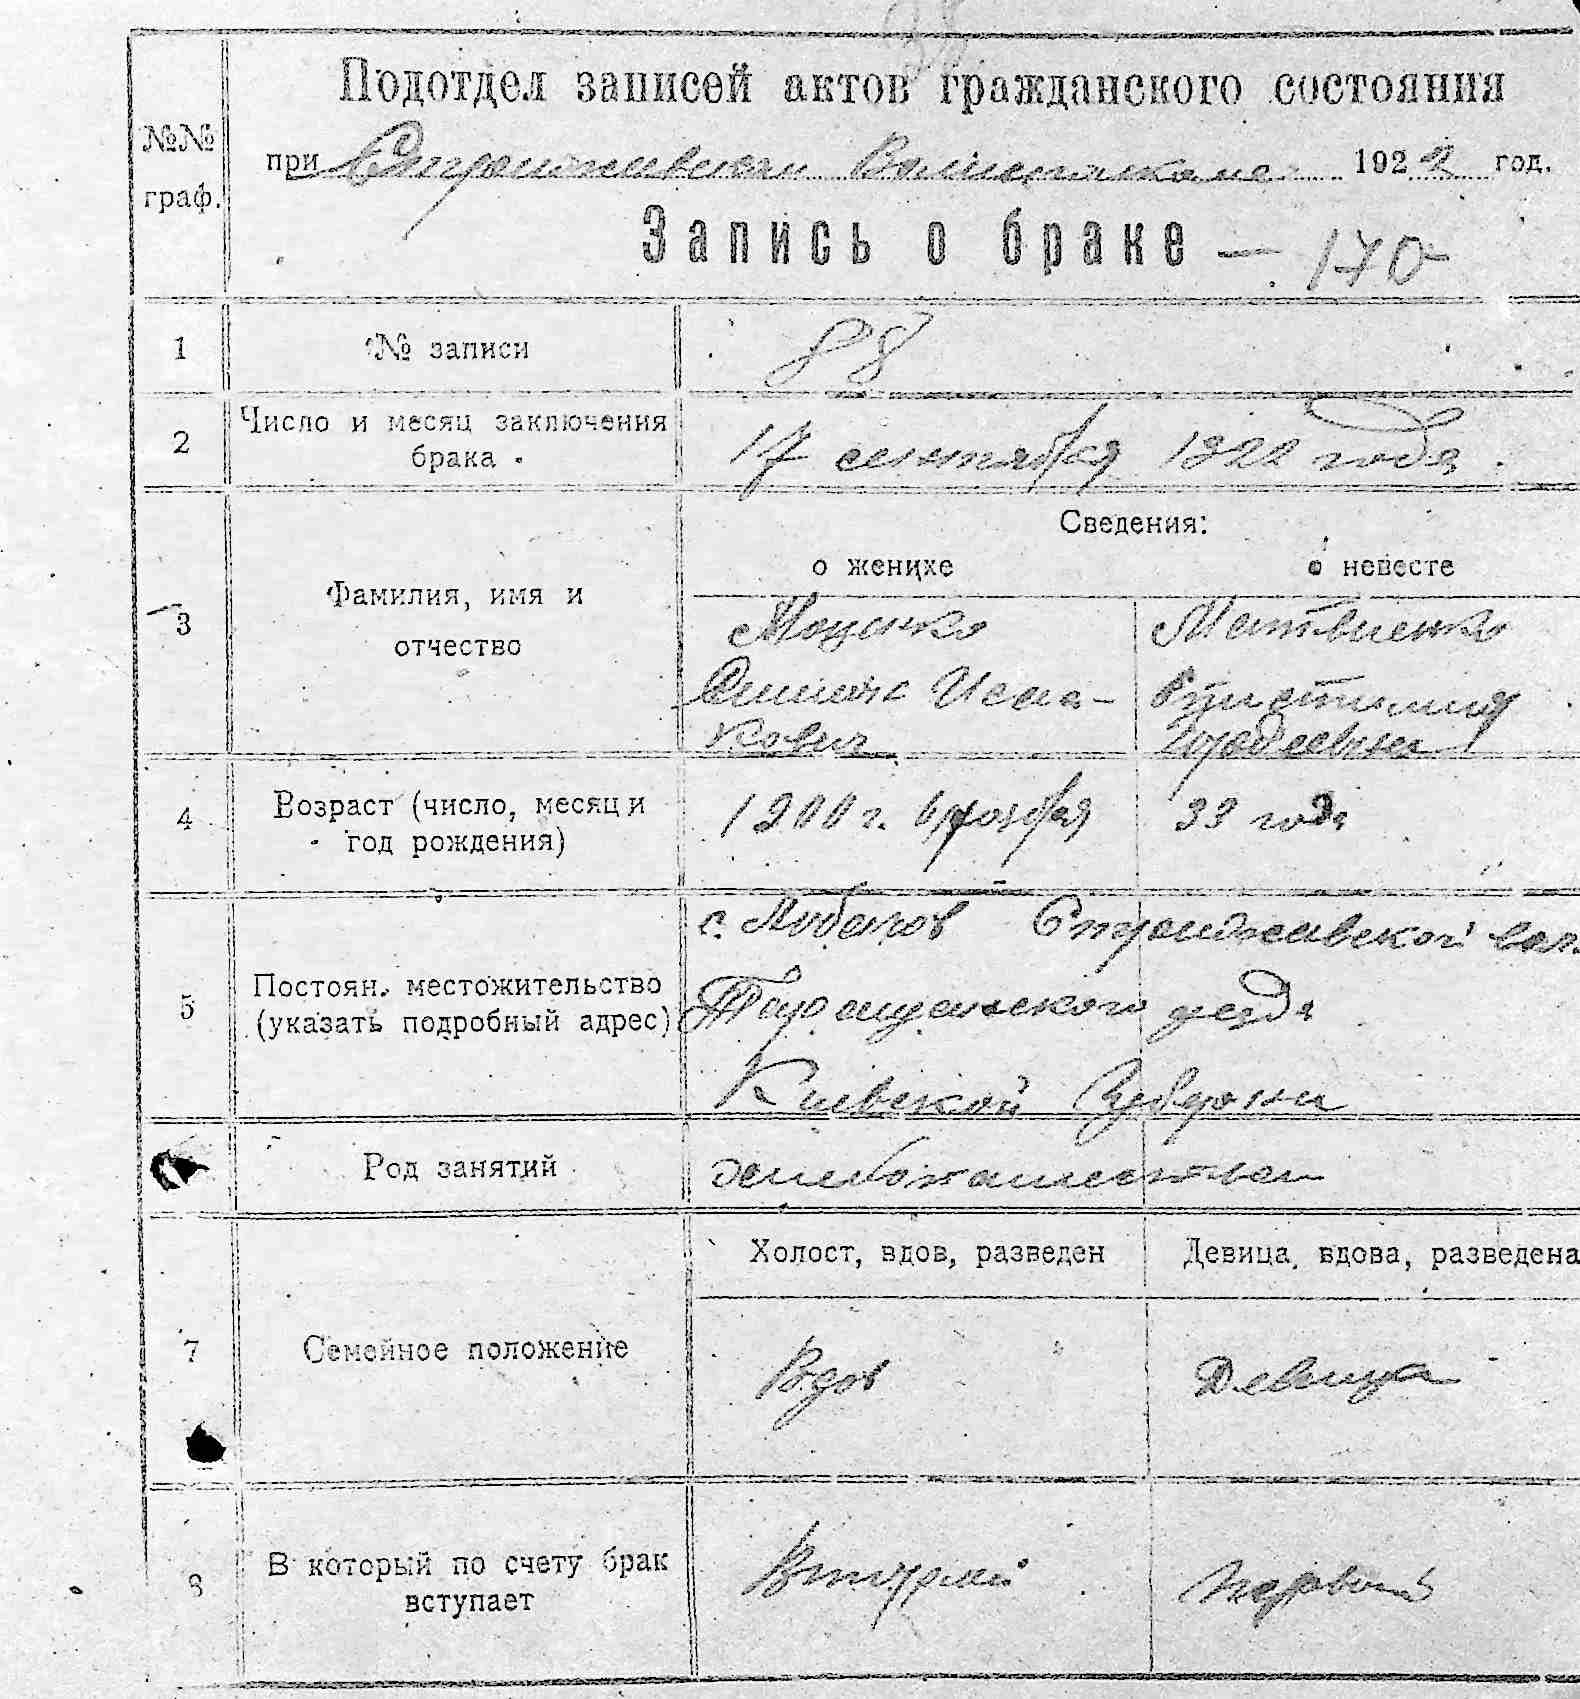 Подотдел записей актов гражданского состояния
№№ граф.
при 1922 год.
Запись о браке — 170
1 № записи 88
2 Число и месяц заключения брака. 17 сентября 1922 года
Сведения:
о женихе о невесте
3 Фамилия, имя и отчество
Моценко Матвиенко
Иса-
кович
4 Возраст (число, месяц и год рождения) 1900 г. 33 года
5 Постоян. местожительство (указать подробный адрес)
с. Лобачов Стрижавской вол.
Таращанского уезда
Киевской Губернии
Род занятий хлебопашество
Холост, вдов, разведен Девица, вдова, разведена
7 Семейное положение Вдов Девица
8 В который по счету брак вступает Вторый Первый